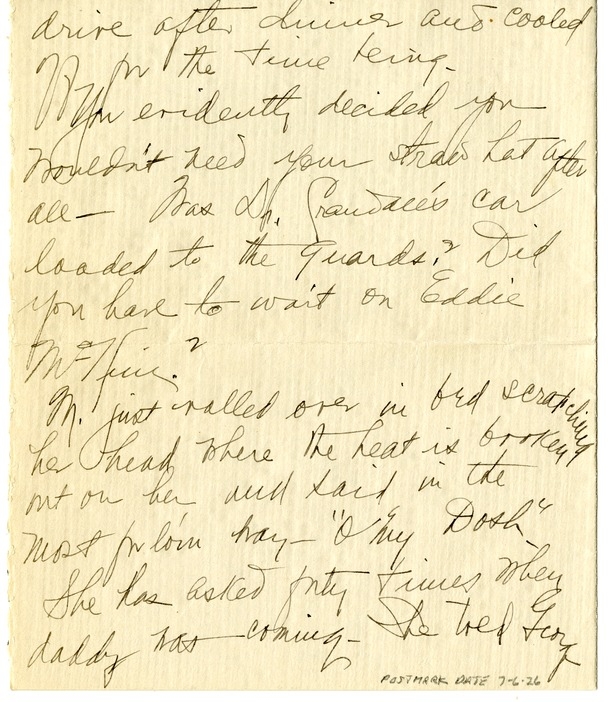 drive after dinner and cooled
off for the time being.
You evidently decided you
wouldn't need your straw hat after
all — Was Dr. Crandall's car
loaded to the guards? Did
you have to wait on Eddie
M. just rolled over in bed scratching
her head where the heat is broken
out on her and said in the
most forlorn way — "O My Dosh"
She has asked forty times when
daddy was coming — She told Georg
POSTMARK DATE 7-6-26